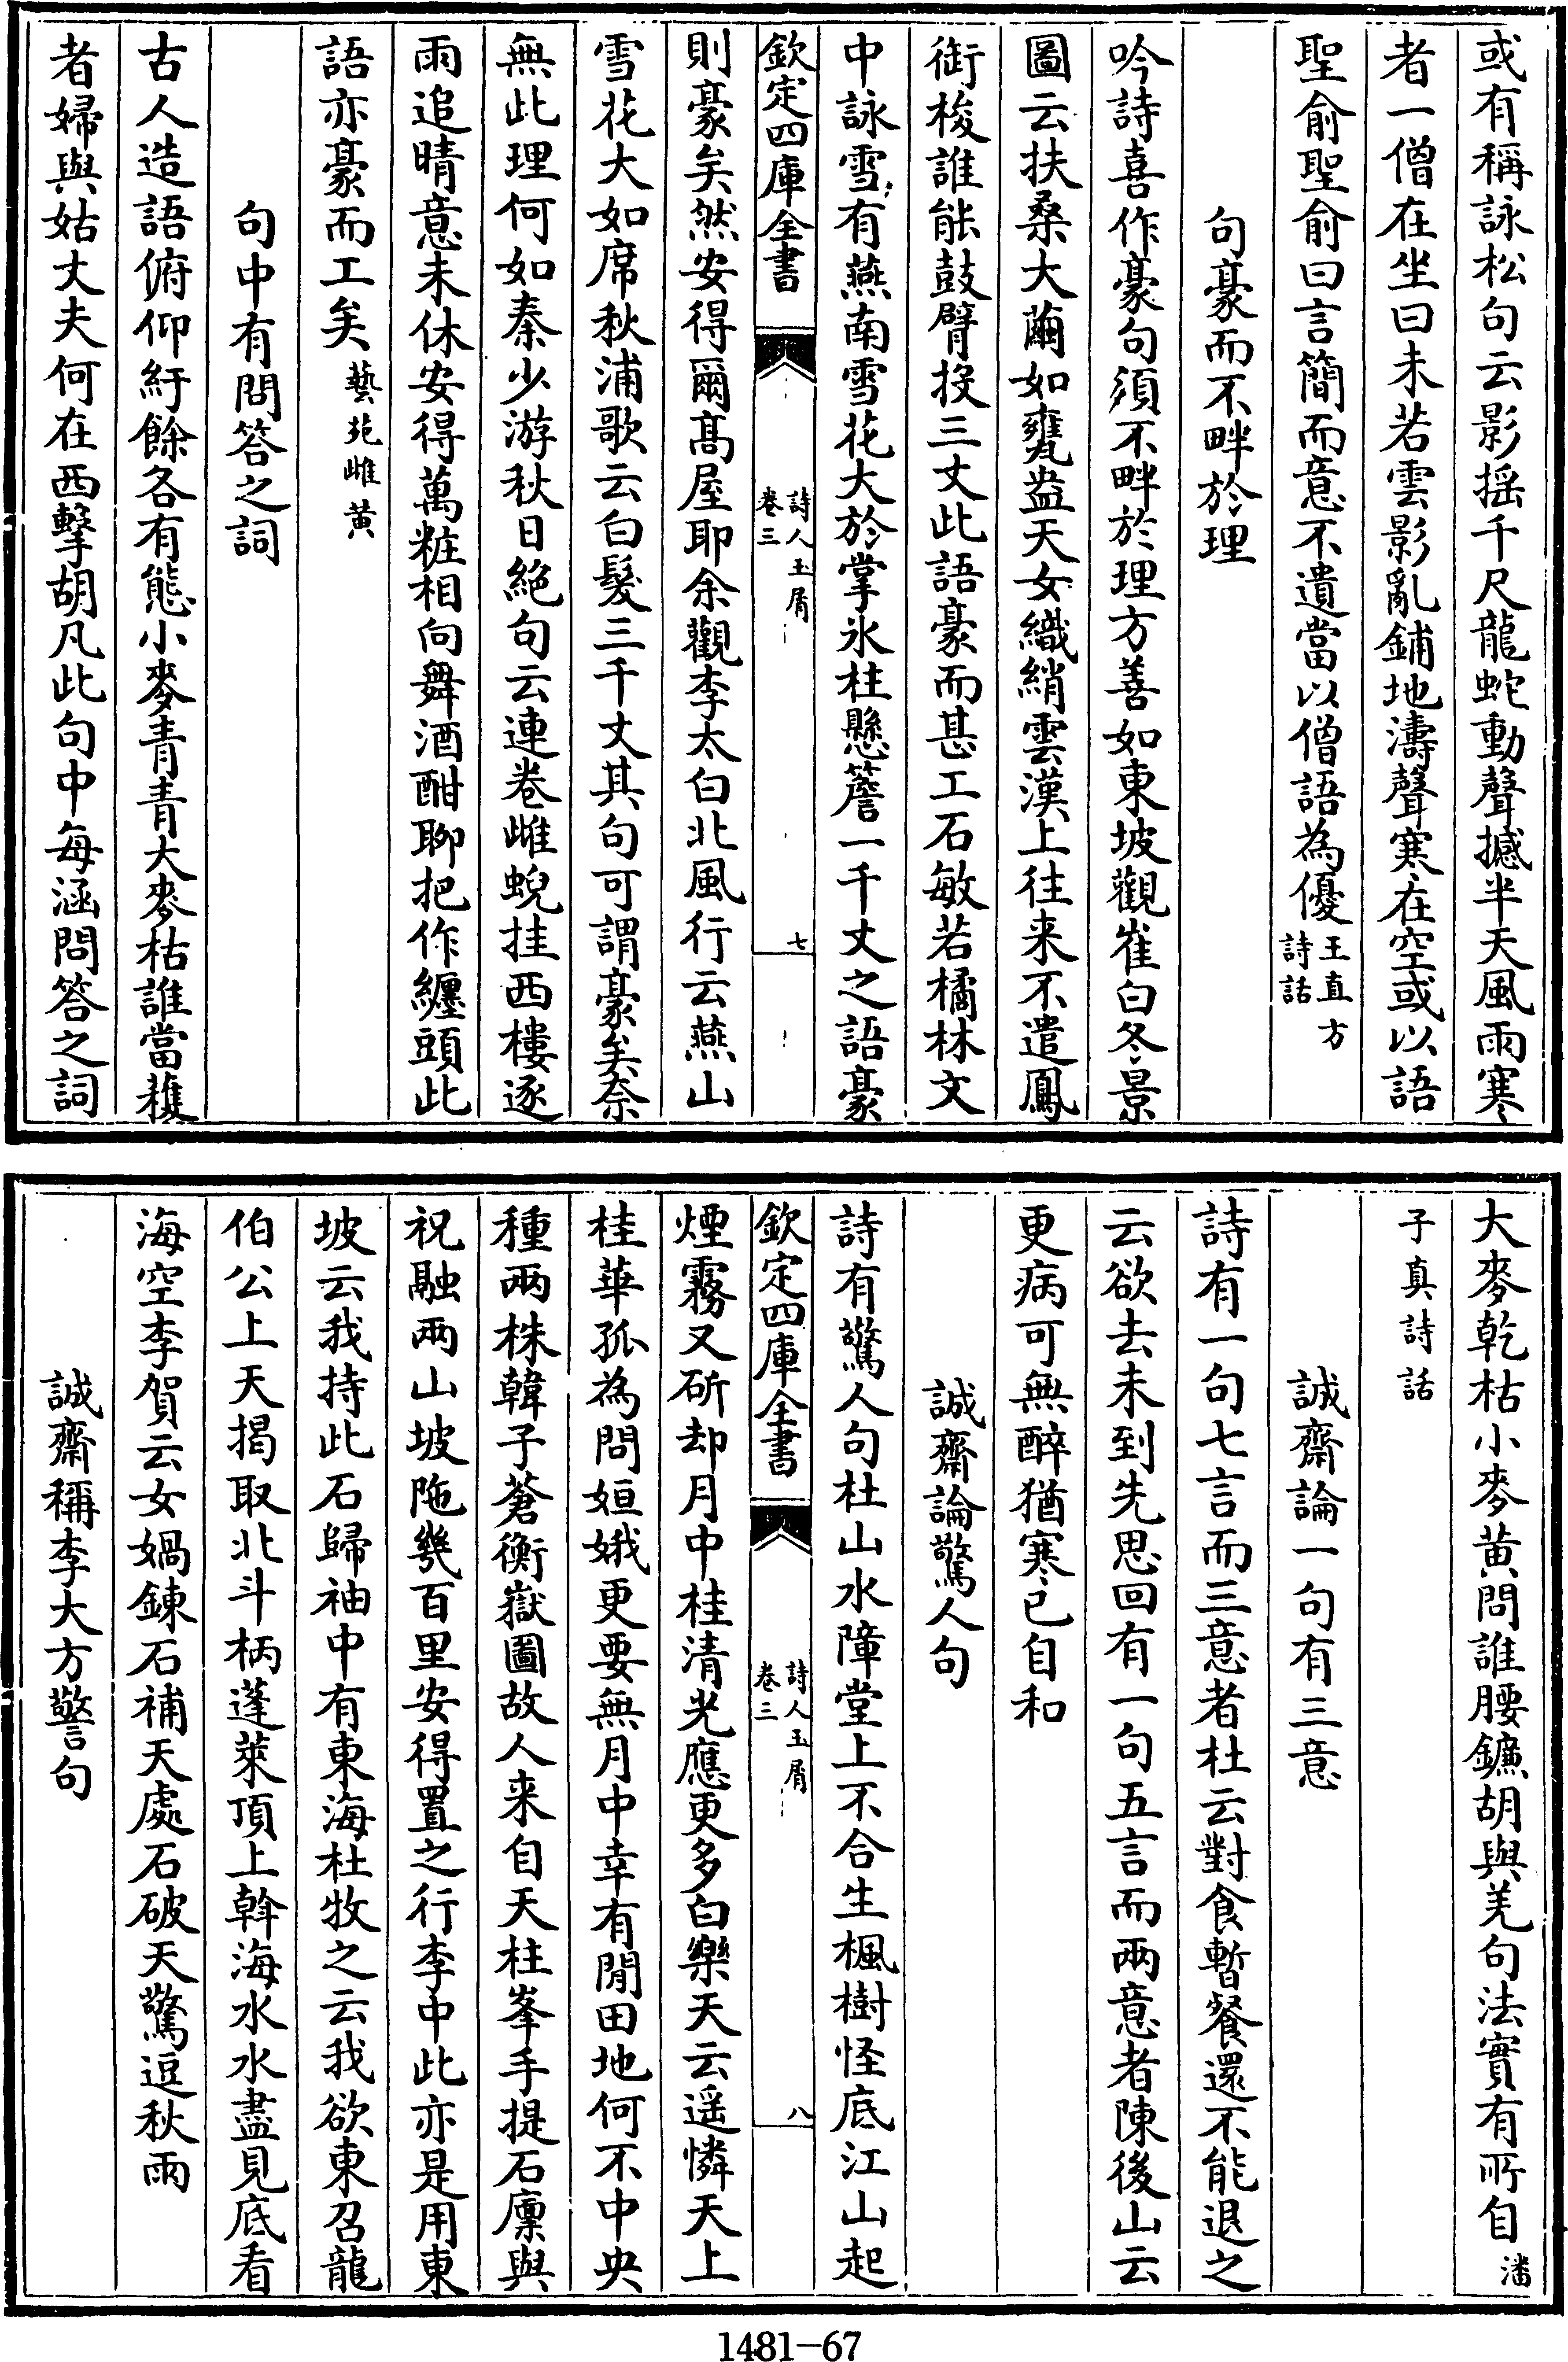 或有稱詠松句云影摇千尺龍蛇動聲撼半天風雨寒
者一僧在坐曰未若雲影亂鋪地濤聲寒在空或以語
聖俞聖俞曰言簡而意不遺當以僧語為優王直方詩話
句豪而不畔於理
吟詩喜作豪句須不畔於理方善如東坡觀崔白冬景
圖云扶桑大繭如甕盎天女織綃雲漢上往来不遣鳳
銜梭誰能鼓臂投三丈此語豪而甚工石敏若橘林文
中詠雪有燕南雪花大於掌氷柱懸簷一千丈之語豪
欽定四庫全書
詩人玉屑
卷三
七
則豪矣然安得爾髙屋耶余觀李太白北風行云燕山
雪花大如席秋浦歌云白髮三千丈其句可謂豪矣奈
無此理何如秦少游秋日絶句云連卷雌蜺挂西樓逐
雨追晴意未休安得萬粧相向舞酒酣聊把作纏頭此
語亦豪而工矣藝苑雌黄
句中有問答之詞
古人造語俯仰紆餘各有態小麥青青大麥枯誰當穫
者婦與姑丈夫何在西擊胡凡此句中每涵問答之詞
大麥乾枯小麥黄問誰腰鐮胡與羌句法實有所自潘
子真詩話
誠齋論一句有三意
詩有一句七言而三意者杜云對食暫餐還不能退之
云欲去未到先思回有一句五言而兩意者陳後山云
更病可無醉猶寒已自和
誠齋論驚人句
詩有驚人句杜山水障堂上不合生楓樹怪底江山起
欽定四庫全書
詩人玉屑
卷三
八
煙霧又斫却月中桂清光應更多白樂天云遥憐天上
桂華孤為問姮娥更要無月中幸有閒田地何不中央
種兩株韓子蒼衡嶽圖故人来自天柱峯手提石廩與
祝融兩山坡陁幾百里安得置之行李中此亦是用東
坡云我持此石歸袖中有東海杜牧之云我欲東召龍
伯公上天揭取北斗柄蓬萊頂上斡海水水盡見底看
海空李賀云女媧鍊石補天處石破天驚逗秋雨
誠齋稱李大方警句
1481-67